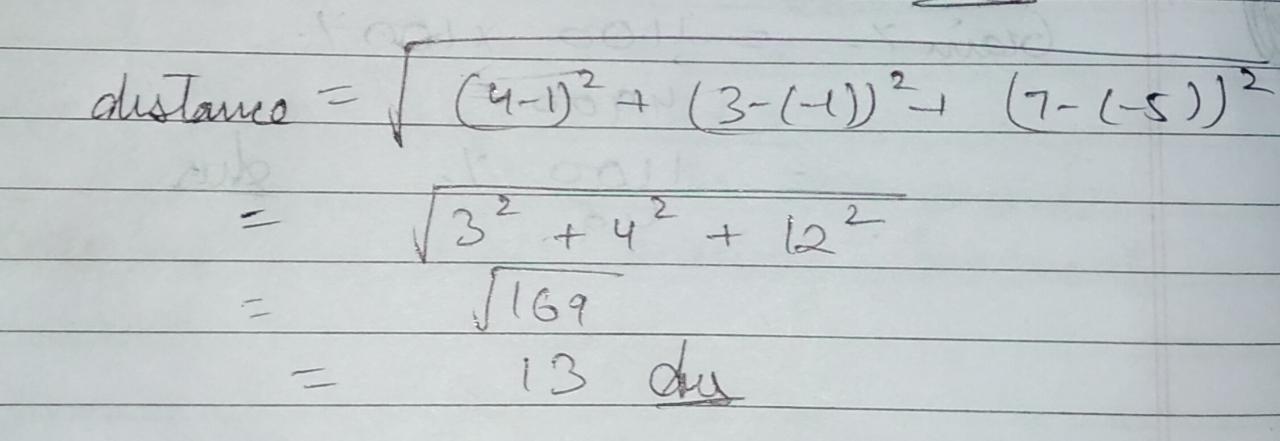 distance = √((4-1)² + (3-(-1))² + (7-(-5))²)
= √(3² + 4² + 12²)
= √169
= 13